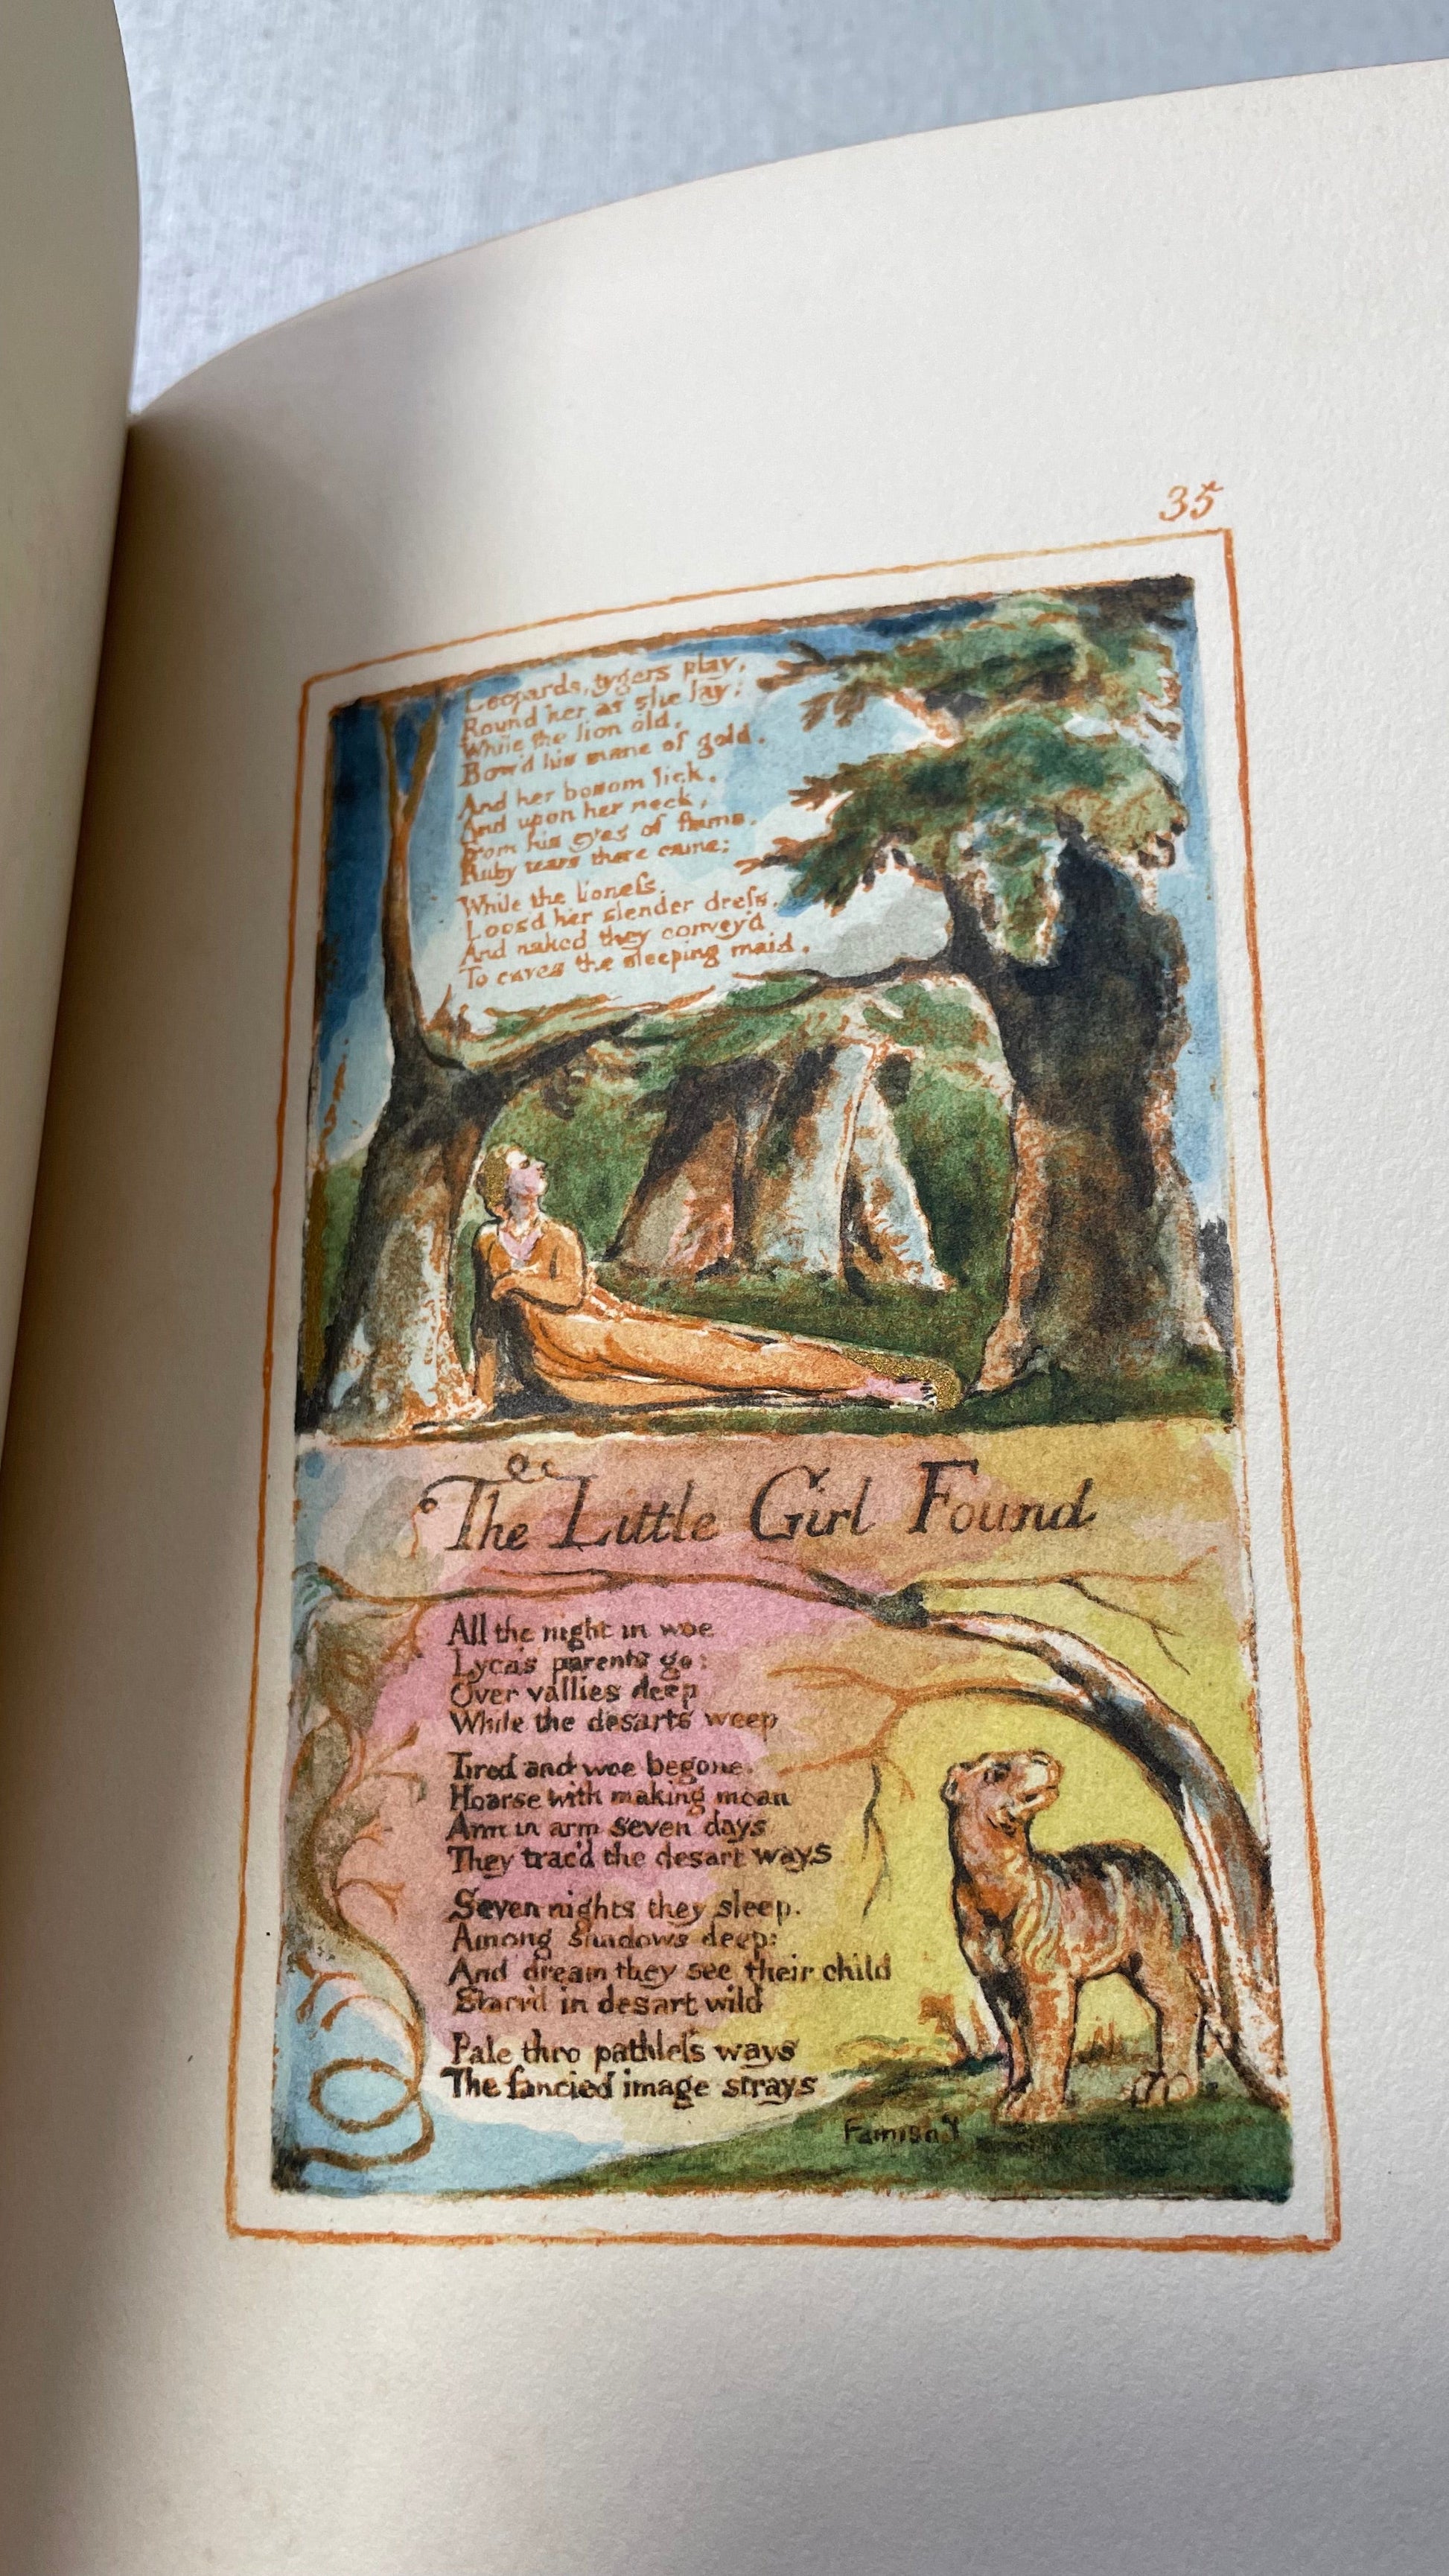 35
Leopards, tygers play,
Round her as she lay;
While the lion old,
Bow'd his mane of gold.
And her bosom lick,
And upon her neck,
From his eyes of flame,
Ruby tears there came;
While the lioneſs,
Loos'd her slender dreſs,
And naked they convey'd
To caves the sleeping maid.
The Little Girl Found
All the night in woe
Lyca's parents go:
Over vallies deep
While the desarts weep
Tired and woe begone.
Hoarse with making moan
Arm in arm seven days
They trac'd the desart ways
Seven nights they sleep.
Among shadows deep:
And dream they see their child
Starv'd in desart wild
Pale thro pathleſs ways
The fancied image strays
Famish'd